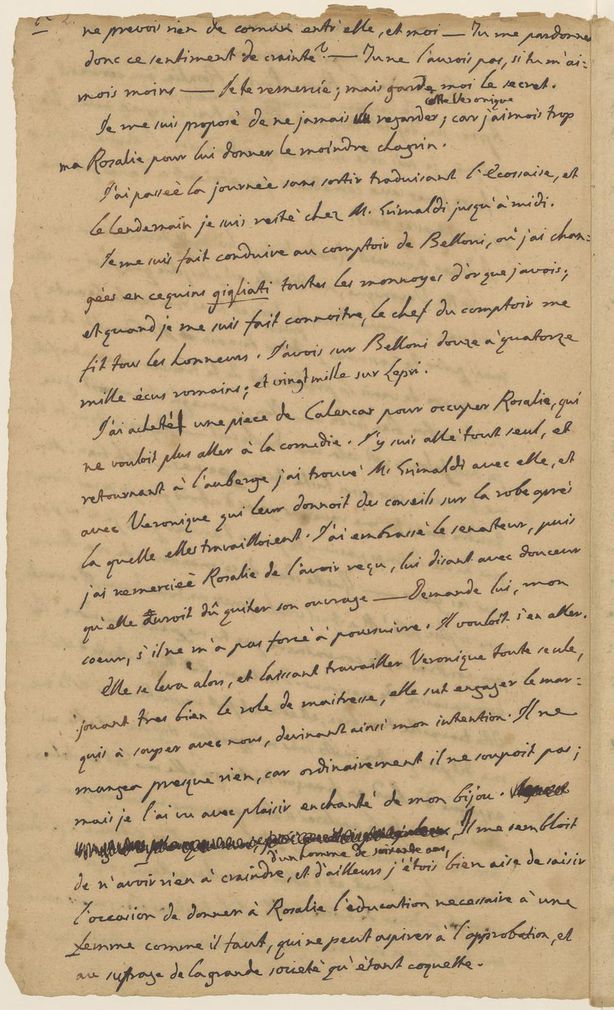 ne prevoir rien de comun entr'elle, et moi — Tu me pardonnes
donc ce sentiment de crainte? — Tu ne l'aurois pas, si tu m'ai=
mois moins — Je te remercie; mais garde moi le secret.
cette Veronique
Je me suis proposé de ne jamais regarder; car j'aimois trop
ma Rosalie pour lui donner le moindre chagrin.
J'ai passée la journée sans sortir traduisant l'Ecossaise, et
le lendemain je suis resté chez M. Grimaldi jusqu'à midi.
Je me suis fait conduire au comptoir de Belloni, où j'ai chan=
gées en cequins gigliati toutes les monnoyes d'or que j'avois;
et quand je me suis fait connoitre, le chef du comptoir me
fit tous les honneurs. J'avois sur Belloni douze à quatorze
mille écus romains; et vingt mille sur Lepri.
J'ai acheté une piece de Calencar pour occuper Rosalie, qui
ne vouloit plus aller à la comedie. J'y suis allé tout seul, et
retournant à l'auberge j'ai trouvé M. Grimaldi avec elle, et
avec Veronique qui leur donnoit des conseils sur la robe après
la quelle elles travailloient. J'ai embrassé le senateur, puis
j'ai remerciée Rosalie de l'avoir reçu, lui disant avec douceur
qu'elle auroit dû quiter son ouvrage — Demande lui, mon
coeur, s'il ne m'a pas forcé à poursuivre. Il vouloit s'en aller.
Elle se leva alors, et laissant travailler Veronique toute seule,
jouant tres bien le role de maitresse, elle sut engager le mar=
quis à souper avec nous, devinant ainsi mon intention. Il ne
mangea presque rien, car ordinairement il ne soupoit pas;
mais je l'ai vu avec plaisir enchanté de mon bijou.
Il me sembloit
d'un homme de soixante ans,
de n'avoir rien à craindre, et d'ailleurs j'étois bien aise de saisir
l'occasion de donner à Rosalie l'education necessaire à une
femme comme il faut, qui ne peut aspirer à l'approbation, et
au suffrage de la grande societé qu'étant coquette.